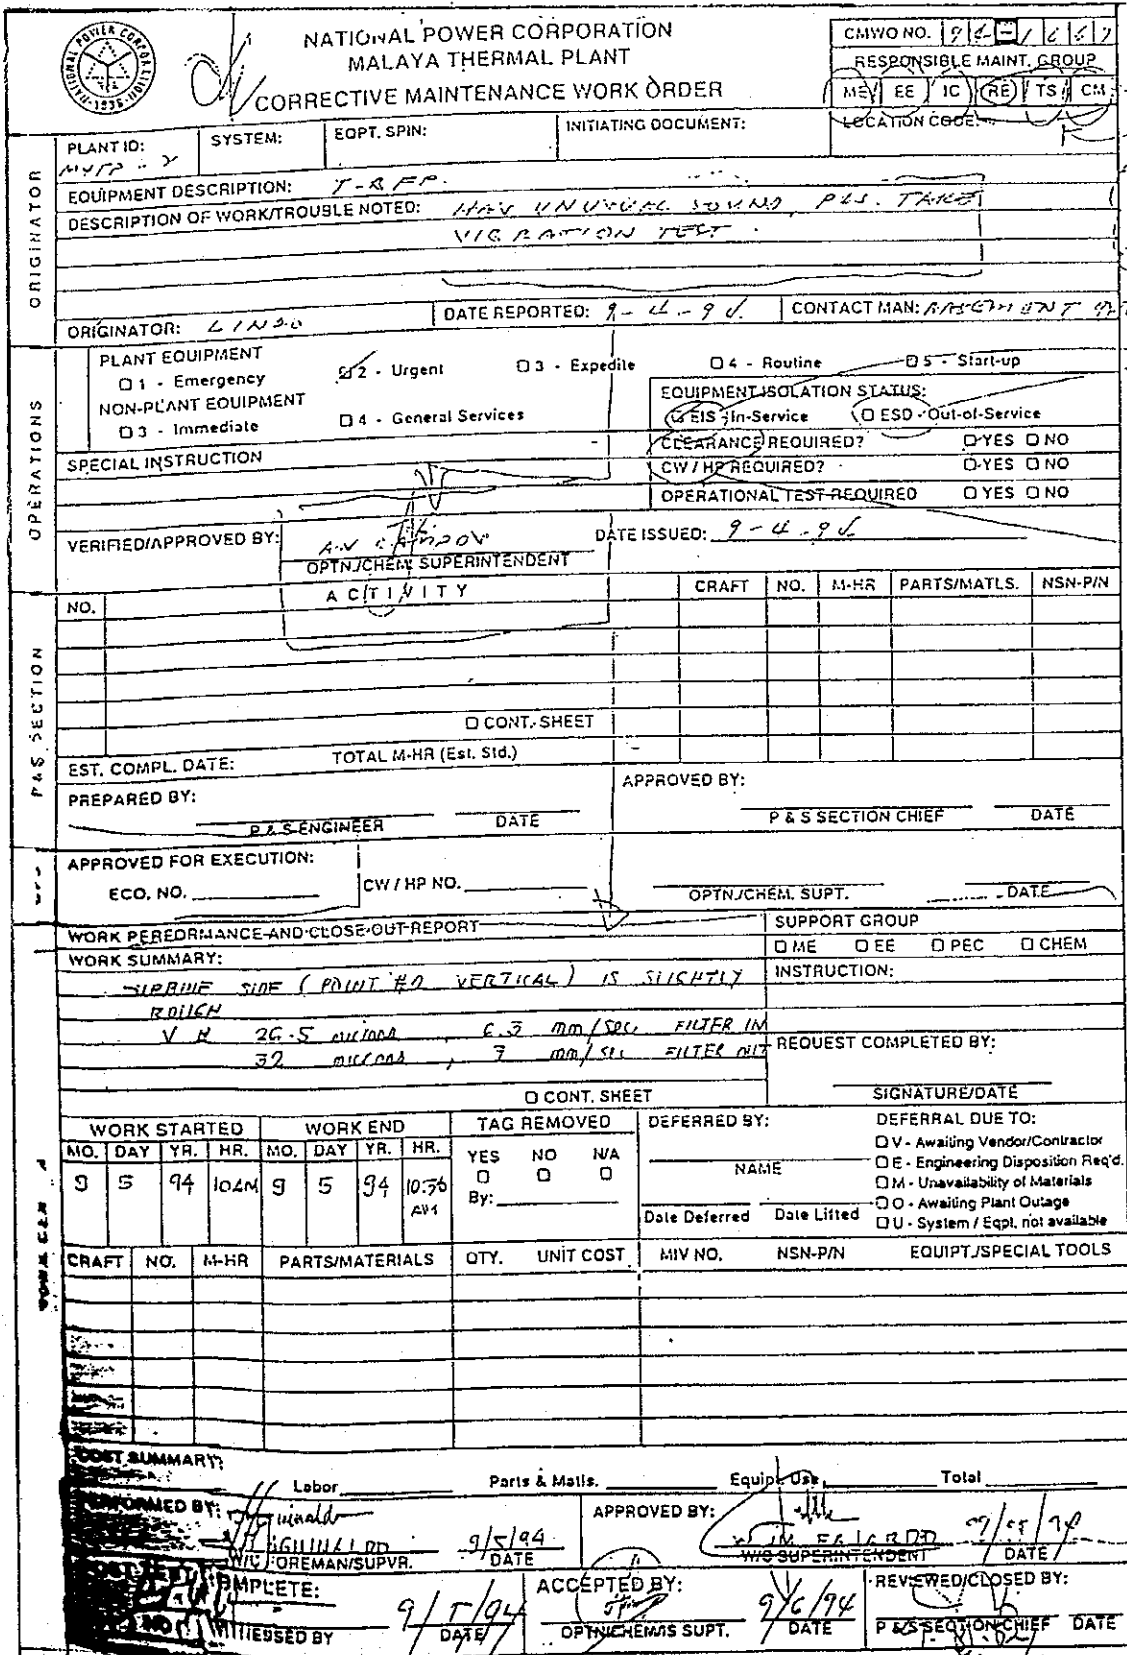 NATIONAL POWER CORPORATION
MALAYA THERMAL PLANT
CORRECTIVE MAINTENANCE WORK ORDER
CMWO NO.
RESPONSIBLE MAINT. GROUP
ME EE IC RE TS CM
LOCATION CODE:
ORIGINATOR
PLANT ID:
SYSTEM:
EQPT. SPIN:
INITIATING DOCUMENT:
EQUIPMENT DESCRIPTION: T-BFP.
DESCRIPTION OF WORK/TROUBLE NOTED: HAS UNUSUAL SOUND, PLS. TAKE
VIBRATION TEST.
ORIGINATOR:
DATE REPORTED: 9-4-94
CONTACT MAN: BASEMENT
OPERATIONS
PLANT EQUIPMENT
1 - Emergency 2 - Urgent 3 - Expedite 4 - Routine 5 - Start-up
NON-PLANT EQUIPMENT
3 - Immediate 4 - General Services
EQUIPMENT ISOLATION STATUS:
EIS - In-Service ESD - Out-of-Service
CLEARANCE REQUIRED? YES NO
SPECIAL INSTRUCTION
CW / HP REQUIRED? YES NO
OPERATIONAL TEST REQUIRED YES NO
VERIFIED/APPROVED BY:
OPTN./CHEM. SUPERINTENDENT
DATE ISSUED: 9-4-94
P&S SECTION
NO. ACTIVITY CRAFT NO. M-HR PARTS/MATLS. NSN-P/N
CONT. SHEET
EST. COMPL. DATE: TOTAL M-HR (Est. Std.)
PREPARED BY:
P & S ENGINEER DATE
APPROVED BY:
P & S SECTION CHIEF DATE
APPROVED FOR EXECUTION:
ECO. NO. CW / HP NO. OPTN./CHEM. SUPT. DATE
WORK PERFORMANCE AND CLOSE-OUT REPORT
SUPPORT GROUP
ME EE PEC CHEM
WORK SUMMARY:
INSTRUCTION:
SIDE (POINT #2 VERTICAL) IS SLIGHTLY
ROUGH
26.5 microns 6.3 mm/sec FILTER IN
32 microns, 7 mm/sec FILTER OUT
REQUEST COMPLETED BY:
CONT. SHEET
SIGNATURE/DATE
WORK STARTED WORK END TAG REMOVED
MO. DAY YR. HR. MO. DAY YR. HR. YES NO N/A
9 5 94 10AM 9 5 94 10:30 AM
By:
DEFERRED BY:
NAME
Date Deferred Date Lifted
DEFERRAL DUE TO:
V - Awaiting Vendor/Contractor
E - Engineering Disposition Req'd.
M - Unavailability of Materials
O - Awaiting Plant Outage
U - System / Eqpt. not available
CRAFT NO. M-HR PARTS/MATERIALS QTY. UNIT COST MIV NO. NSN-P/N EQUIPT./SPECIAL TOOLS
COST SUMMARY:
Labor Parts & Matls. Equipt. Use Total
PERFORMED BY:
9/5/94
W/C FOREMAN/SUPVR. DATE
APPROVED BY:
W/C SUPERINTENDENT DATE
COMPLETE:
WITNESSED BY
9/5/94
DATE
ACCEPTED BY:
OPTN/CHEM/S SUPT.
9/6/94
DATE
REVIEWED/CLOSED BY:
P & S SECTION CHIEF DATE